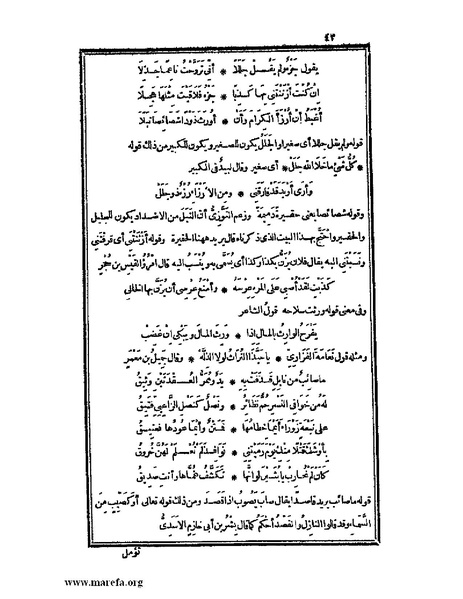 ٤٣
يقول جزء ولم يقل جللا * أنى تزوجت ناعما جذلا
ان كنت أزننتني بها كذبا * جزء فلاقيت مثلها عجلا
أغبط أن أرزأ الكرام وأن * أورث ذودا شصائصا نبلا
قوله ولم يقل جللا أى صغيرا والجلل يكون للصغير ويكون للكبير من ذلك قوله
* كل شئ ما خلا الله جلل * أى صغير وقال لبيد فى الكبير
وأرى أربد قد فارقني * ومن الأرزاء رزء ذو جلل
وقوله شصائصا يعنى حقيرة ذميمة وزعم التوزى أن النبل من الاضداد يكون للجليل
والحقير واحتج بهذا البيت الذى ذكرناه قال يريد ههنا الحقيرة وقوله أزننتنى أى قرفتنى
ونسبتنى اليه يقال فلان يزن بكذا وكذا أى يسمى به وينسب اليه قال امرؤ القيس بن حجر
كذبت لقد أصبى على المرء عرسه * وأمنع عرسى أن يزن بها الخالى
وفى معنى قوله ورثت سلاحه قول الشاعر
يفرح الوارث بالمال اذا * ورث المال ويبكى ان غضب
ومثله قول نعامة الفزارى * يا حبذا التراث لولا الذله * وقال جميل بن معمر
ما صائب من نابل قذفت به * يد وممر العقدتين وثيق
له من خوافى النسر حم نظائر * ونصل كنصل الزاعبى فتيق
على نبعة زوراء أيما خطامها * فمتن وأيما عودها فعتيق
بأوشك قتلا منك يوم رميتنى * نوافذ لم تعلم لهن خروق
كأن لم نحارب يا بثين لو انها * تكشف غماها وأنت صديق
قوله ما صائب يريد قاصدا يقال صاب يصوب اذا قصد ومن ذلك قوله تعالى أو كصيب من
السماء وقد قالوا النازل والقصد أحكم كما قال بشر بن أبى خازم الأسدى
تؤمل
www.marefa.org